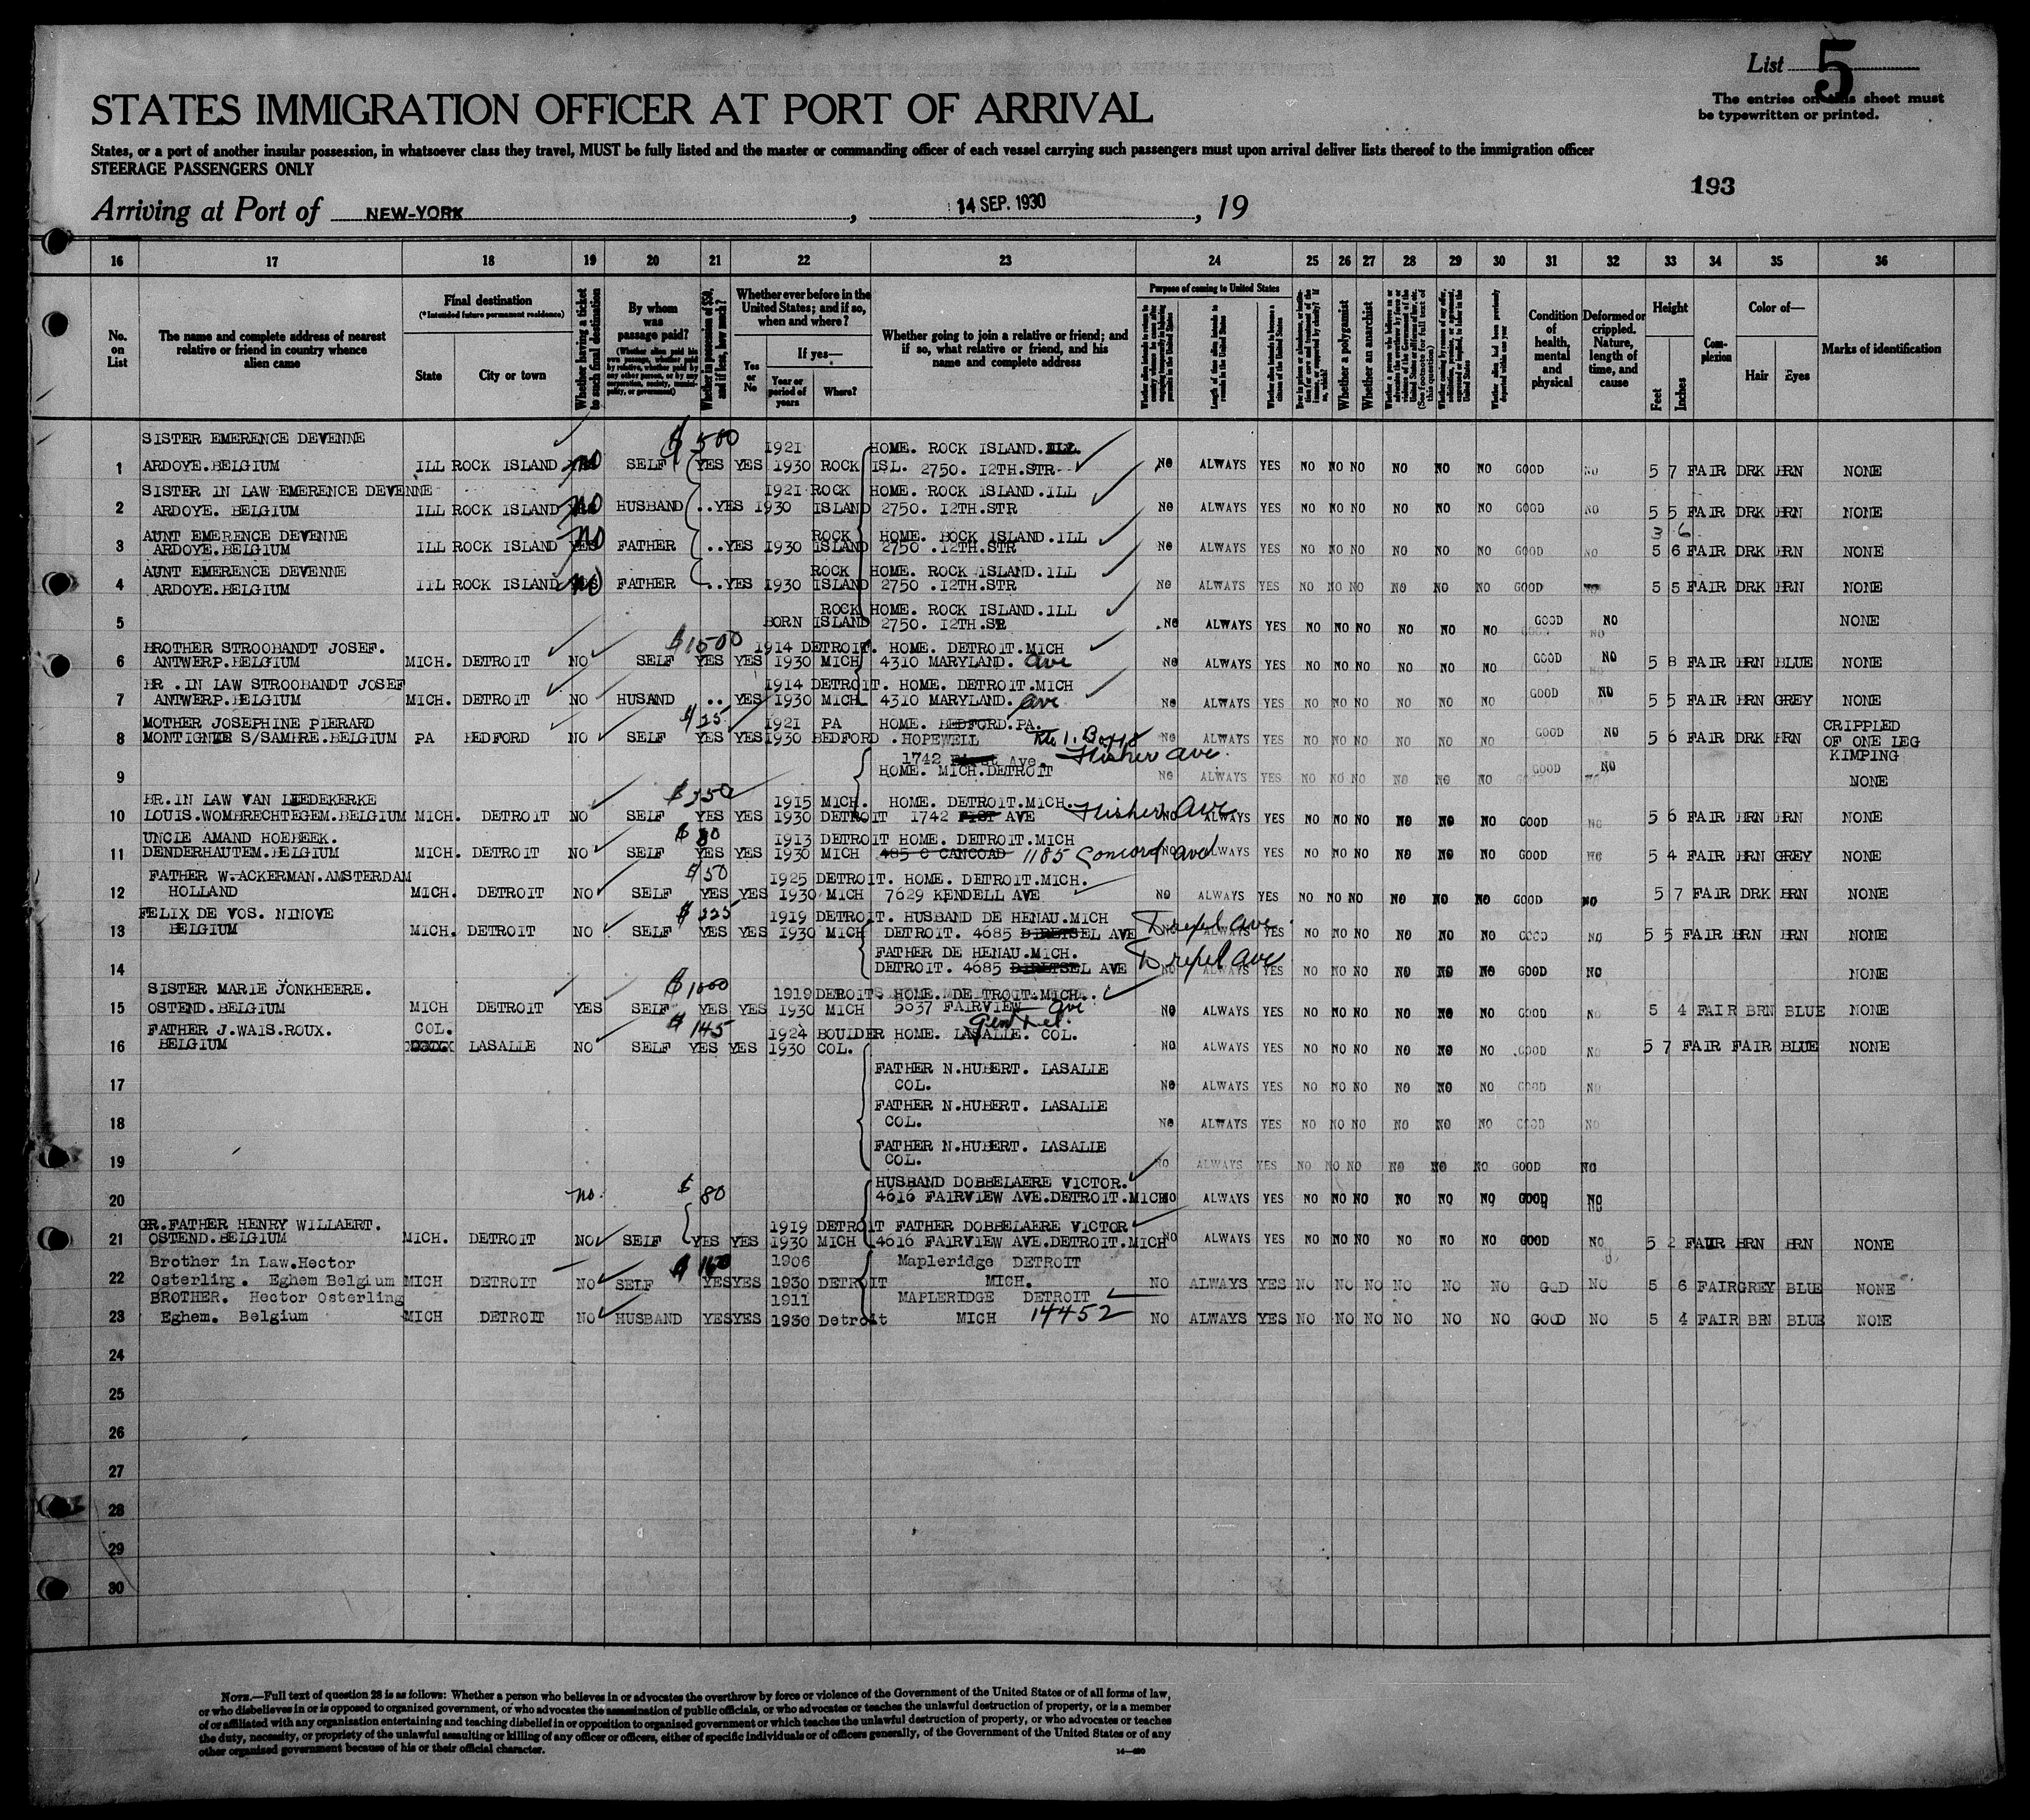 List 5
The entries on this sheet must
be typewritten or printed.
STATES IMMIGRATION OFFICER AT PORT OF ARRIVAL
States, or a port of another insular possession, in whatsoever class they travel, MUST be fully listed and the master or commanding officer of each vessel carrying such passengers must upon arrival deliver lists thereof to the immigration officer
STEERAGE PASSENGERS ONLY
193
Arriving at Port of NEW-YORK, 14 SEP. 1930, 19
16 17 18 19 20 21 22 23 24 25 26 27 28 29 30 31 32 33 34 35 36
No. on List
The name and complete address of nearest relative or friend in country whence alien came
Final destination
(*Intended future permanent residence)
State
City or town
Whether having a ticket to such final destination
By whom was passage paid?
(Whether alien paid his own passage, whether paid by relative, whether paid by any other person, or by any corporation, society, municipality, or government)
Whether in possession of $50, and if less, how much?
Whether ever before in the United States; and if so, when and where?
Yes or No
If yes—
Year or period of years
Where?
Whether going to join a relative or friend; and if so, what relative or friend, and his name and complete address
Purpose of coming to United States
Length of time alien intends to remain in the United States
Whether alien intends to become a citizen of the United States
Whether a polygamist
Whether an anarchist
Whether alien had been previously deported within one year
Condition of health, mental and physical
Deformed or crippled. Nature, length of time, and cause
Height
Feet
Inches
Complexion
Color of—
Hair
Eyes
Marks of identification
SISTER EMERENCE DEVENNE $ 500 1921 HOME. ROCK ISLAND.ILL
1 ARDOYE.BELGIUM ILL ROCK ISLAND no SELF YES YES 1930 ROCK ISL. 2750. 12TH.STR NO ALWAYS YES NO NO NO NO NO NO GOOD NO 5 7 FAIR DRK BRN NONE
SISTER IN LAW EMERENCE DEVENNE 1921 ROCK HOME. ROCK ISLAND.ILL
2 ARDOYE. BELGIUM ILL ROCK ISLAND no HUSBAND .. YES 1930 ISLAND 2750. 12TH.STR NO ALWAYS YES NO NO NO NO NO NO GOOD NO 5 5 FAIR DRK BRN NONE
AUNT EMERENCE DEVENNE no ROCK HOME. ROCK ISLAND.ILL 3 6
3 ARDOYE.BELGIUM ILL ROCK ISLAND YES FATHER .. YES 1930 ISLAND 2750 .12TH.STR NO ALWAYS YES NO NO NO NO NO NO GOOD NO 5 6 FAIR DRK BRN NONE
AUNT EMERENCE DEVENNE ROCK HOME. ROCK ISLAND.ILL
4 ARDOYE.BELGIUM ILL ROCK ISLAND no FATHER .. YES 1930 ISLAND 2750 .12TH.STR NO ALWAYS YES NO NO NO NO NO NO GOOD NO 5 5 FAIR DRK BRN NONE
ROCK HOME. ROCK ISLAND.ILL
5 BORN ISLAND 2750. 12TH.STR NO ALWAYS YES NO NO NO NO NO NO GOOD NO NONE
BROTHER STROOBANDT JOSEF. $1500 1914 DETROIT. HOME. DETROIT.MICH
6 ANTWERP.BELGIUM MICH. DETROIT NO SELF YES YES 1930 MICH 4310 MARYLAND. ave NO ALWAYS YES NO NO NO NO NO NO GOOD NO 5 8 FAIR BRN BLUE NONE
BR .IN LAW STROOBANDT JOSEF 1914 DETROIT. HOME. DETROIT.MICH
7 ANTWERP.BELGIUM MICH. DETROIT NO HUSAND .. YES 1930 MICH 4310 MARYLAND. ave NO ALWAYS YES NO NO NO NO NO NO GOOD NO 5 5 FAIR BRN GREY NONE
MOTHER JOSEPHINE PIERARD $ 25 1921 PA HOME. BEDFORD.PA. CRIPPLED
8 MONTIGNIE S/SAMBRE.BELGIUM PA BEDFORD NO SELF YES YES 1930 BEDFORD . HOPEWELL Rte 1. Box 8 NO ALWAYS YES NO NO NO NO NO NO GOOD NO 5 6 FAIR DRK BRN OF ONE LEG
KIMPING
1742 First Ave. Fischer ave.
9 HOME. MICH.DETROIT NO ALWAYS YES NO NO NO NO NO NO GOOD NO NONE
BR.IN LAW VAN LIEDEKERKE $ 350 1915 MICH. HOME. DETROIT.MICH.
10 LOUIS.WOMBRECHTEGEM.BELGIUM MICH. DETROIT NO SELF YES YES 1930 DETROIT 1742 FIST AVE Fischer Ave NO ALWAYS YES NO NO NO NO NO NO GOOD NO 5 6 FAIR BRN BRN NONE
UNCLE AMAND HOEBEEK. $ 80 1913 DETROIT HOME. DETROIT.MICH
11 DENDERHAUTEM.BELGIUM MICH. DETROIT NO SELF YES YES 1930 MICH 485 C CANCOAD 1185 Concord ave NO ALWAYS YES NO NO NO NO NO NO GOOD NO 5 4 FAIR BRN GREY NONE
FATHER W.ACKERMAN.AMSTERDAM $50 1925 DETROIT. HOME. DETROIT.MICH.
12 HOLLAND MICH. DETROIT NO SELF YES YES 1930 MICH 7629 KENDELL AVE NO ALWAYS YES NO NO NO NO NO NO GOOD NO 5 7 FAIR DRK BRN NONE
FELIX DE VOS. NINOVE $ 225 1919 DETROIT. HUSBAND DE HENAU.MICH
13 BELGIUM MICH. DETROIT NO SELF YES YES 1930 MICH DETROIT. 4685 AVE Drexel ave. NO ALWAYS YES NO NO NO NO NO NO GOOD NO 5 5 FAIR BRN BRN NONE
FATHER DE HENAU.MICH.
14 DETROIT. 4685 AVE Drexel ave NO ALWAYS YES NO NO NO NO NO NO GOOD NO NONE
SISTER MARIE JONKHEERE. $ 1000 1919 DEROIT. HOME. DETROIT.MICH.
15 OSTEND.BELGIUM MICH DETROIT YES SELF YES YES 1930 MICH 5637 FAIRVIEW ave NO ALWAYS YES NO NO NO NO NO NO GOOD NO 5 4 FAIR BRN BLUE NONE
FATHER J.WAIS.ROUX. COL. $ 145 1924 BOULDER HOME. LASALLE. COL. Gen Del.
16 BELGIUM LASALLE NO SELF YES YES 1930 COL. NO ALWAYS YES NO NO NO NO NO NO GOOD NO 5 7 FAIR FAIR BLUE NONE
FATHER N.HUBERT. LASALLE
17 COL. NO ALWAYS YES NO NO NO NO NO NO GOOD NO
FATHER N.HUBERT. LASALLE
18 COL. NO ALWAYS YES NO NO NO NO NO NO GOOD NO
FATHER N.HUBERT. LASALLE
19 COL. NO ALWAYS YES NO NO NO NO NO NO GOOD NO
HUSBAND DOBBELAERE VICTOR.
20 no. $ 80 4616 FAIRVIEW AVE.DETROIT.MICH NO ALWAYS YES NO NO NO NO NO NO GOOD NO
GR.FATHER HENRY WILLAERT. 1919 DETROIT FATHER DOBBELAERE VICTOR
21 OSTEND.BELGIUM MICH. DETROIT NO SELF YES YES 1930 MICH 4616 FAIRVIEW AVE.DETROIT.MICH NO ALWAYS YES NO NO NO NO NO NO GOOD NO 5 2 FAIR BRN BRN NONE
Brother in Law.Hector $ 160 1906 Mapleridge DETROIT
22 Osterling. Eghem Belgium MICH DETROIT NO SELF YES YES 1930 DETROIT MICH. NO ALWAYS YES NO NO NO NO NO NO GOD NO 5 6 FAIR GREY BLUE NONE
BROTHER. Hector Osterling 1911 MAPLERIDGE DETROIT
23 Eghem. Belgium MICH DETROIT NO HUSBAND YES YES 1930 Detroit MICH 14452 NO ALWAYS YES NO NO NO NO NO NO GOOD NO 5 4 FAIR BRN BLUE NONE
24
25
26
27
28
29
30
NOTE.—Full text of question 28 is as follows: Whether a person who believes in or advocates the overthrow by force or violence of the Government of the United States or of all forms of law,
or who disbelieves in or is opposed to organized government, or who advocates the assassination of public officials, or who advocates or teaches the unlawful destruction of property, or is a member
of or affiliated with any organization entertaining and teaching disbelief in or opposition to organized government or which teaches the unlawful destruction of property, or who advocates or teaches
the duty, necessity, or propriety of the unlawful assaulting or killing of any officer or officers, either of specific individuals or of officers generally, of the Government of the United States or of any
other organized government because of his or their official character.